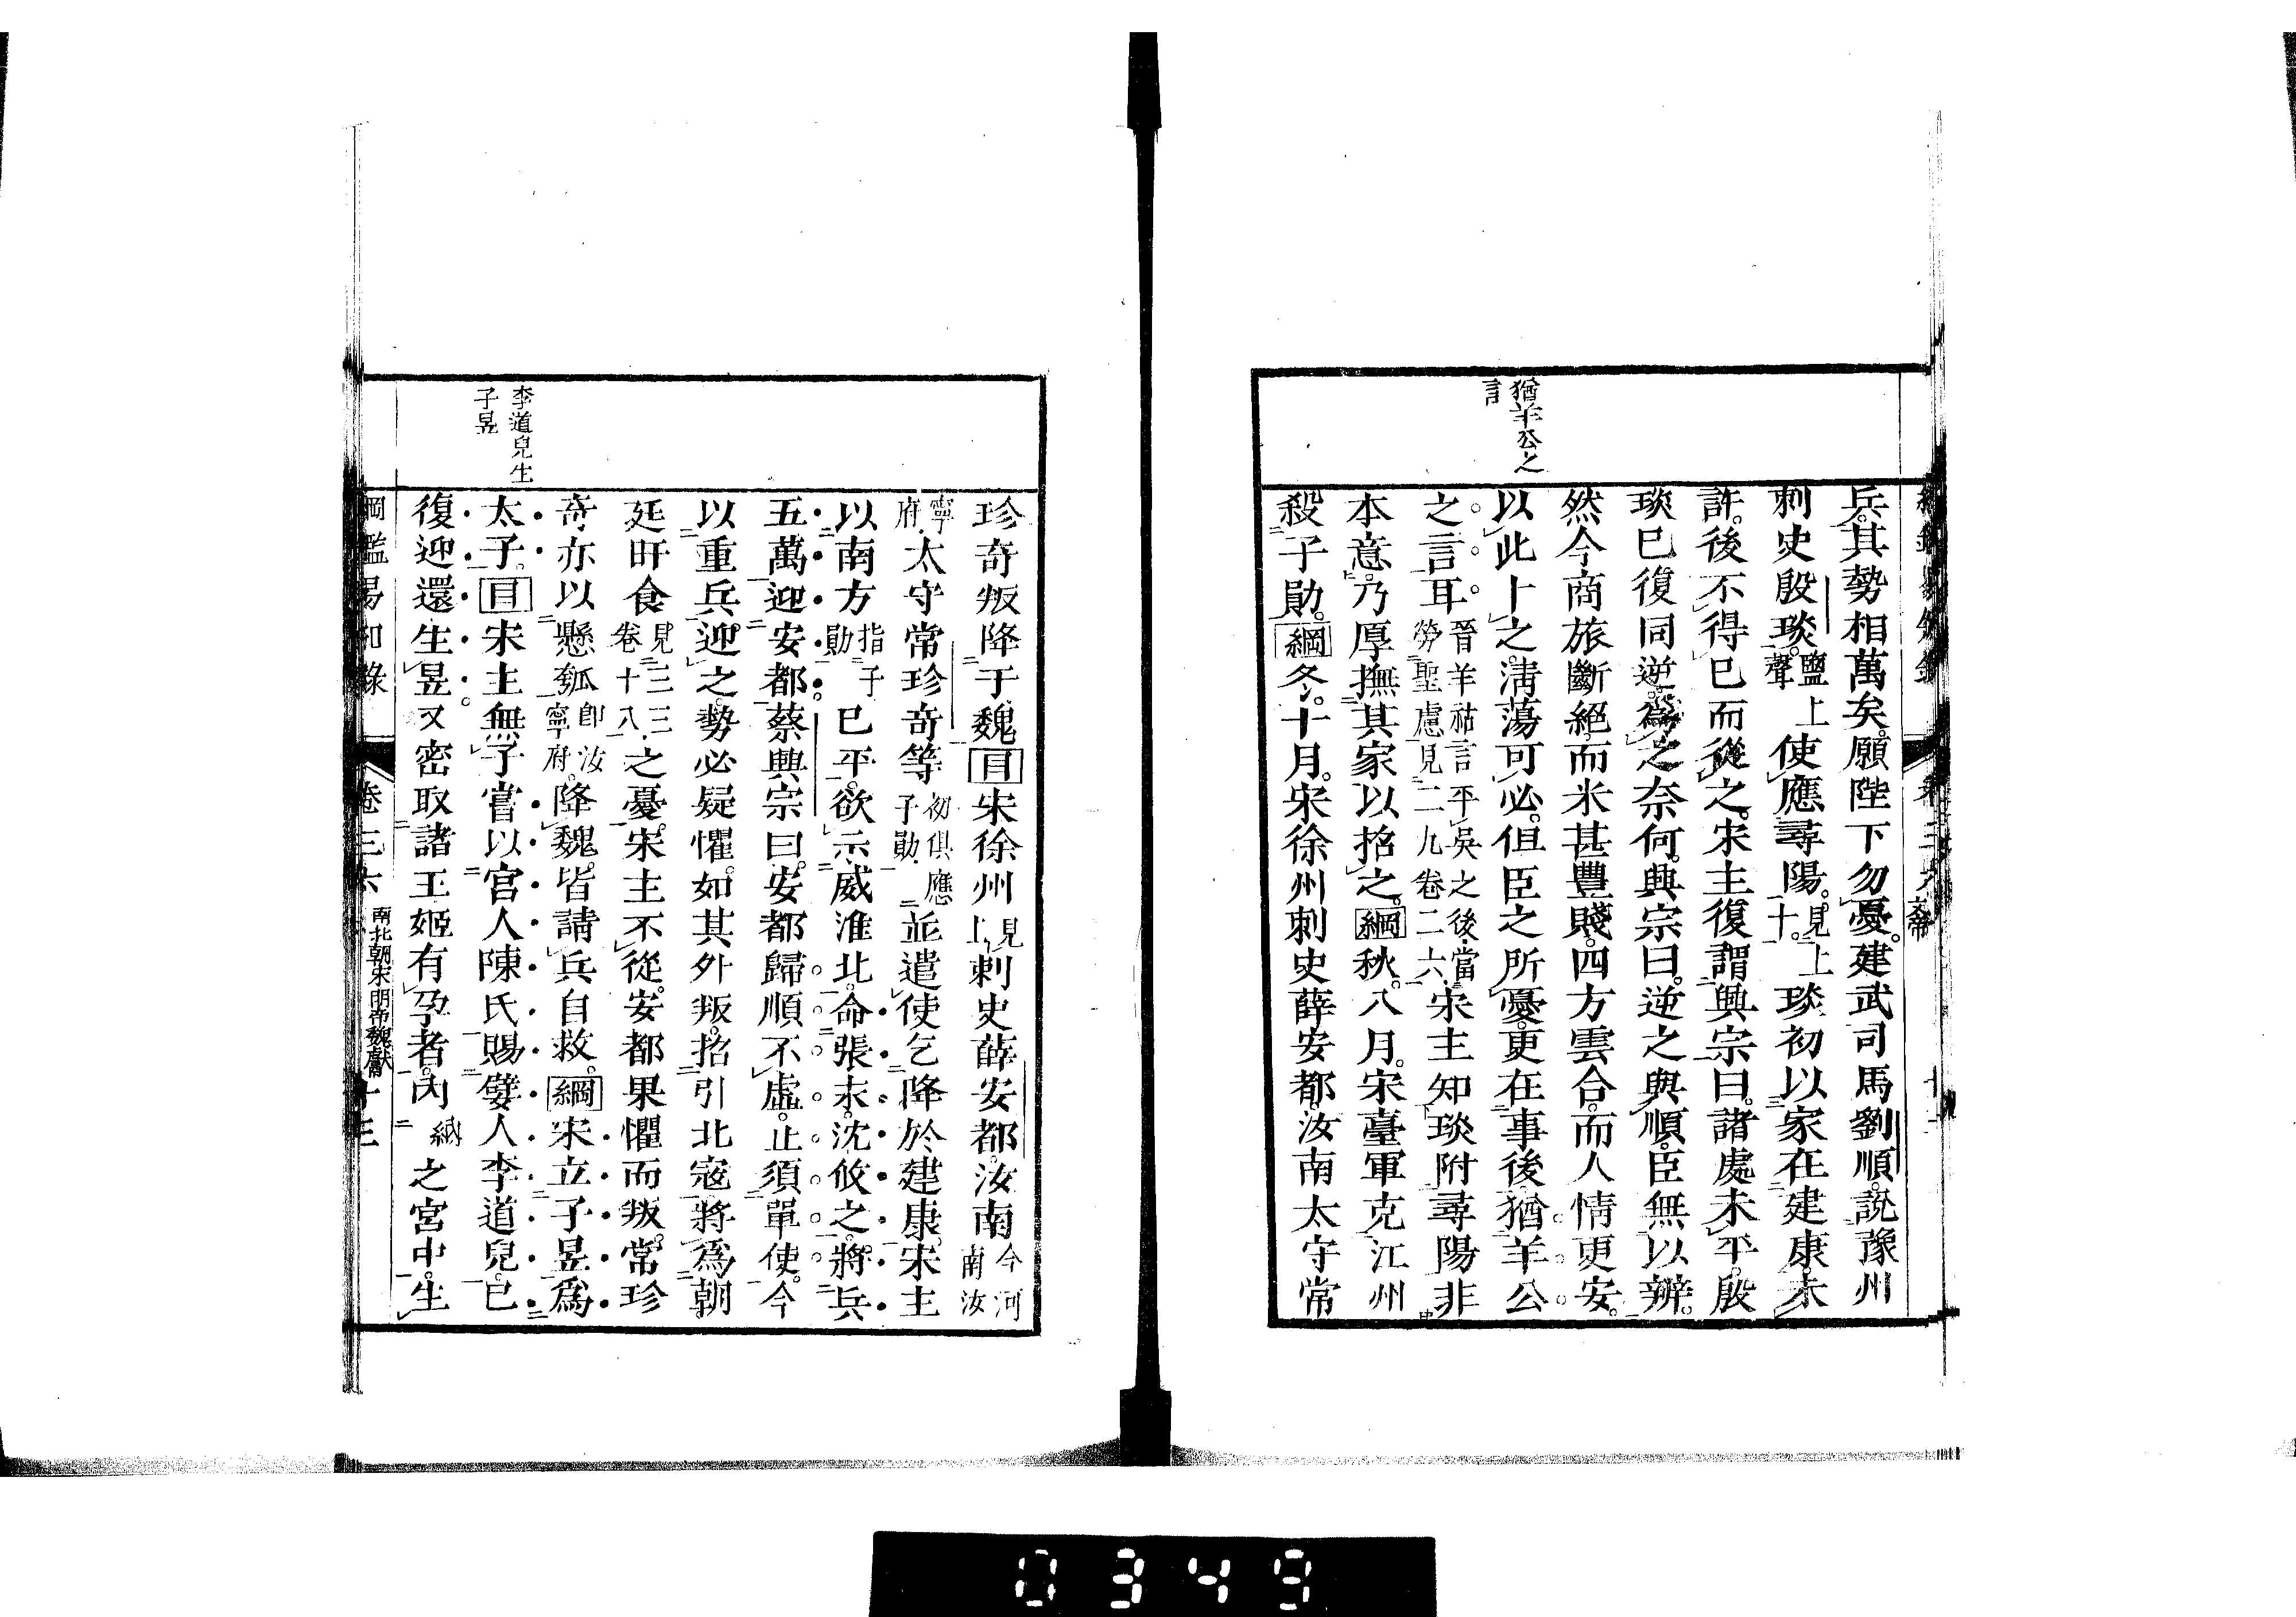 猶羊公之
言
兵其勢相萬矣願陛下勿憂建武司馬劉順說豫州
刺史殷琰鹽上聲使應尋陽見上十琰初以家在建康未
許後不得已而從之宋主復謂興宗曰諸處未平殷
琰已復同逆爲之奈何興宗曰逆之與順臣無以辨
然今商旅斷絕而米甚豐賤四方雲合而人情更安
以此卜之淸蕩可必但臣之所憂更在事後猶羊公
之言耳晉羊祜言平吳之後當勞聖慮見二九卷二六宋主知琰附尋陽非
本意乃厚撫其家以招之綱秋八月宋臺軍克江州
殺子勛綱冬十月宋徐州刺史薛安都汝南太守常
李道兒生
子昱
珍奇叛降于魏目宋徐州見上刺史薛安都汝南今河南汝
寧府太守常珍奇等初俱應子勛並遣使乞降於建康宋主
以南方指子勛已平欲示威淮北命張永沈攸之將兵
五萬迎安都蔡興宗曰安都歸順不虛止須單使今
以重兵迎之勢必疑懼如其外叛招引北寇將爲朝
廷旰食見三三卷十八之憂宋主不從安都果懼而叛常珍
奇亦以懸瓠卽汝寧府降魏皆請兵自救綱宋立子昱爲
太子目宋主無子嘗以宮人陳氏賜嬖人李道兒已
復迎還生昱又密取諸王姬有孕者內納之宮中生
綱鑑易知錄 卷三六 南北朝宋明帝魏獻 十三
0349